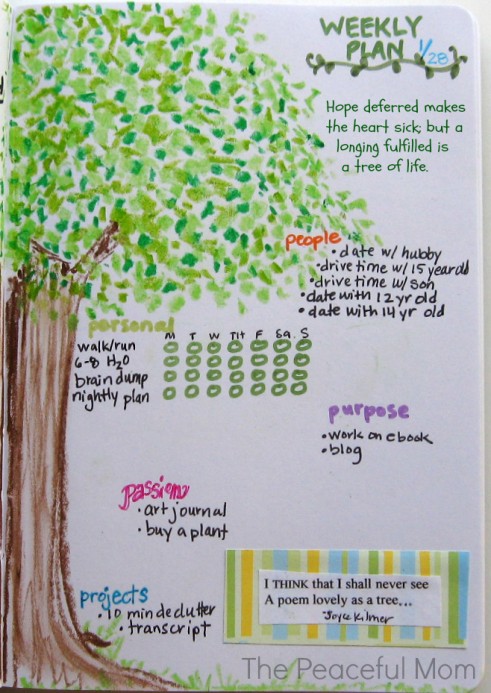 WEEKLY
PLAN 1/28
Hope deferred makes
the heart sick; but a
longing fulfilled is
a tree of life.
people
• date w/ hubby
• drive time w/ 15 year old
• drive time w/ son
• date with 12 yr old
• date with 14 yr old
personal
M T W TH F Sa. S
walk/run
6-8 H2O
brain dump
nightly plan
purpose
• work on ebook
• blog
passion
• art journal
• buy a plant
projects
• 10 min declutter
• transcript
I THINK that I shall never see
A poem lovely as a tree...
~Joyce Kilmer
The Peaceful Mom